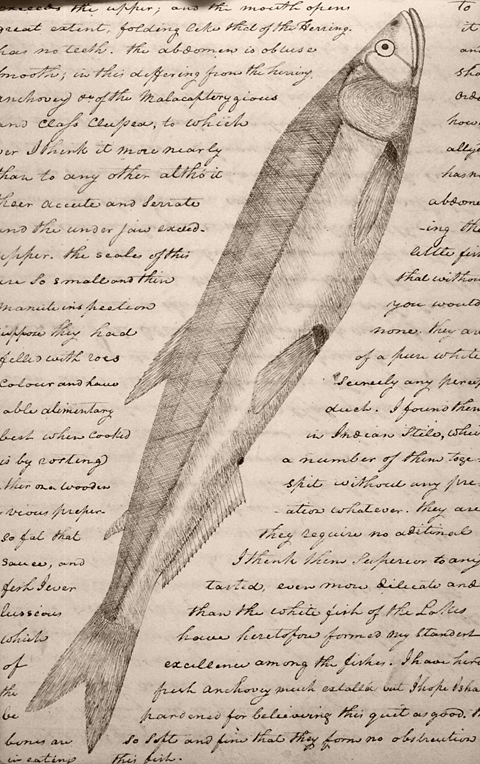 exceeds the upper; and the mouth opens to
great extent, folding like that of the Herring. it
has no teeth. the abdomen is obtuse an
smooth; in this differing from the herring, sha
anchovey &c of the Malacapterygious Orde
and Class Clupea, to which how
ver I think it more nearly ally
than to any other altho' it has n
their accute and serrate abdome
and the under jaw exceed- -ing the
upper. the scales of this little fis
are so small and thin that withou
manute inspection you would
suppose they had none. they are
filled with roes of a pure white
colour and have Scercely any percep
able alimentary duct. I found them
best when cooked in Indian Stile, whi
is by roasting a number of them toge
ther on a wooden spit without any pre-
vious prepar- -ation whatever. they are
so fat that they require no aditional
sauce, and I think them superior to any
fish I ever tasted, even more dilicate and
lussious than the white fish of the Lakes
which have heretofore formed my standart
of excellence among the fishes. I have her
the fresh anchovey much extolled but I hope I sha
be pardoned for believing this quit as good. t
bones are so soft and fine that they form no obstruction
in eating this fish.